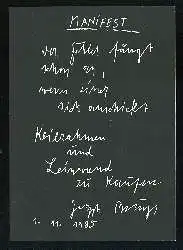 MANIFEST
der Fehler fängt
schon an,
wenn einer
sich anschickt
Keilrahmen
und
Leinwand
zu kaufen.
Joseph Beuys
1. 11. 1985